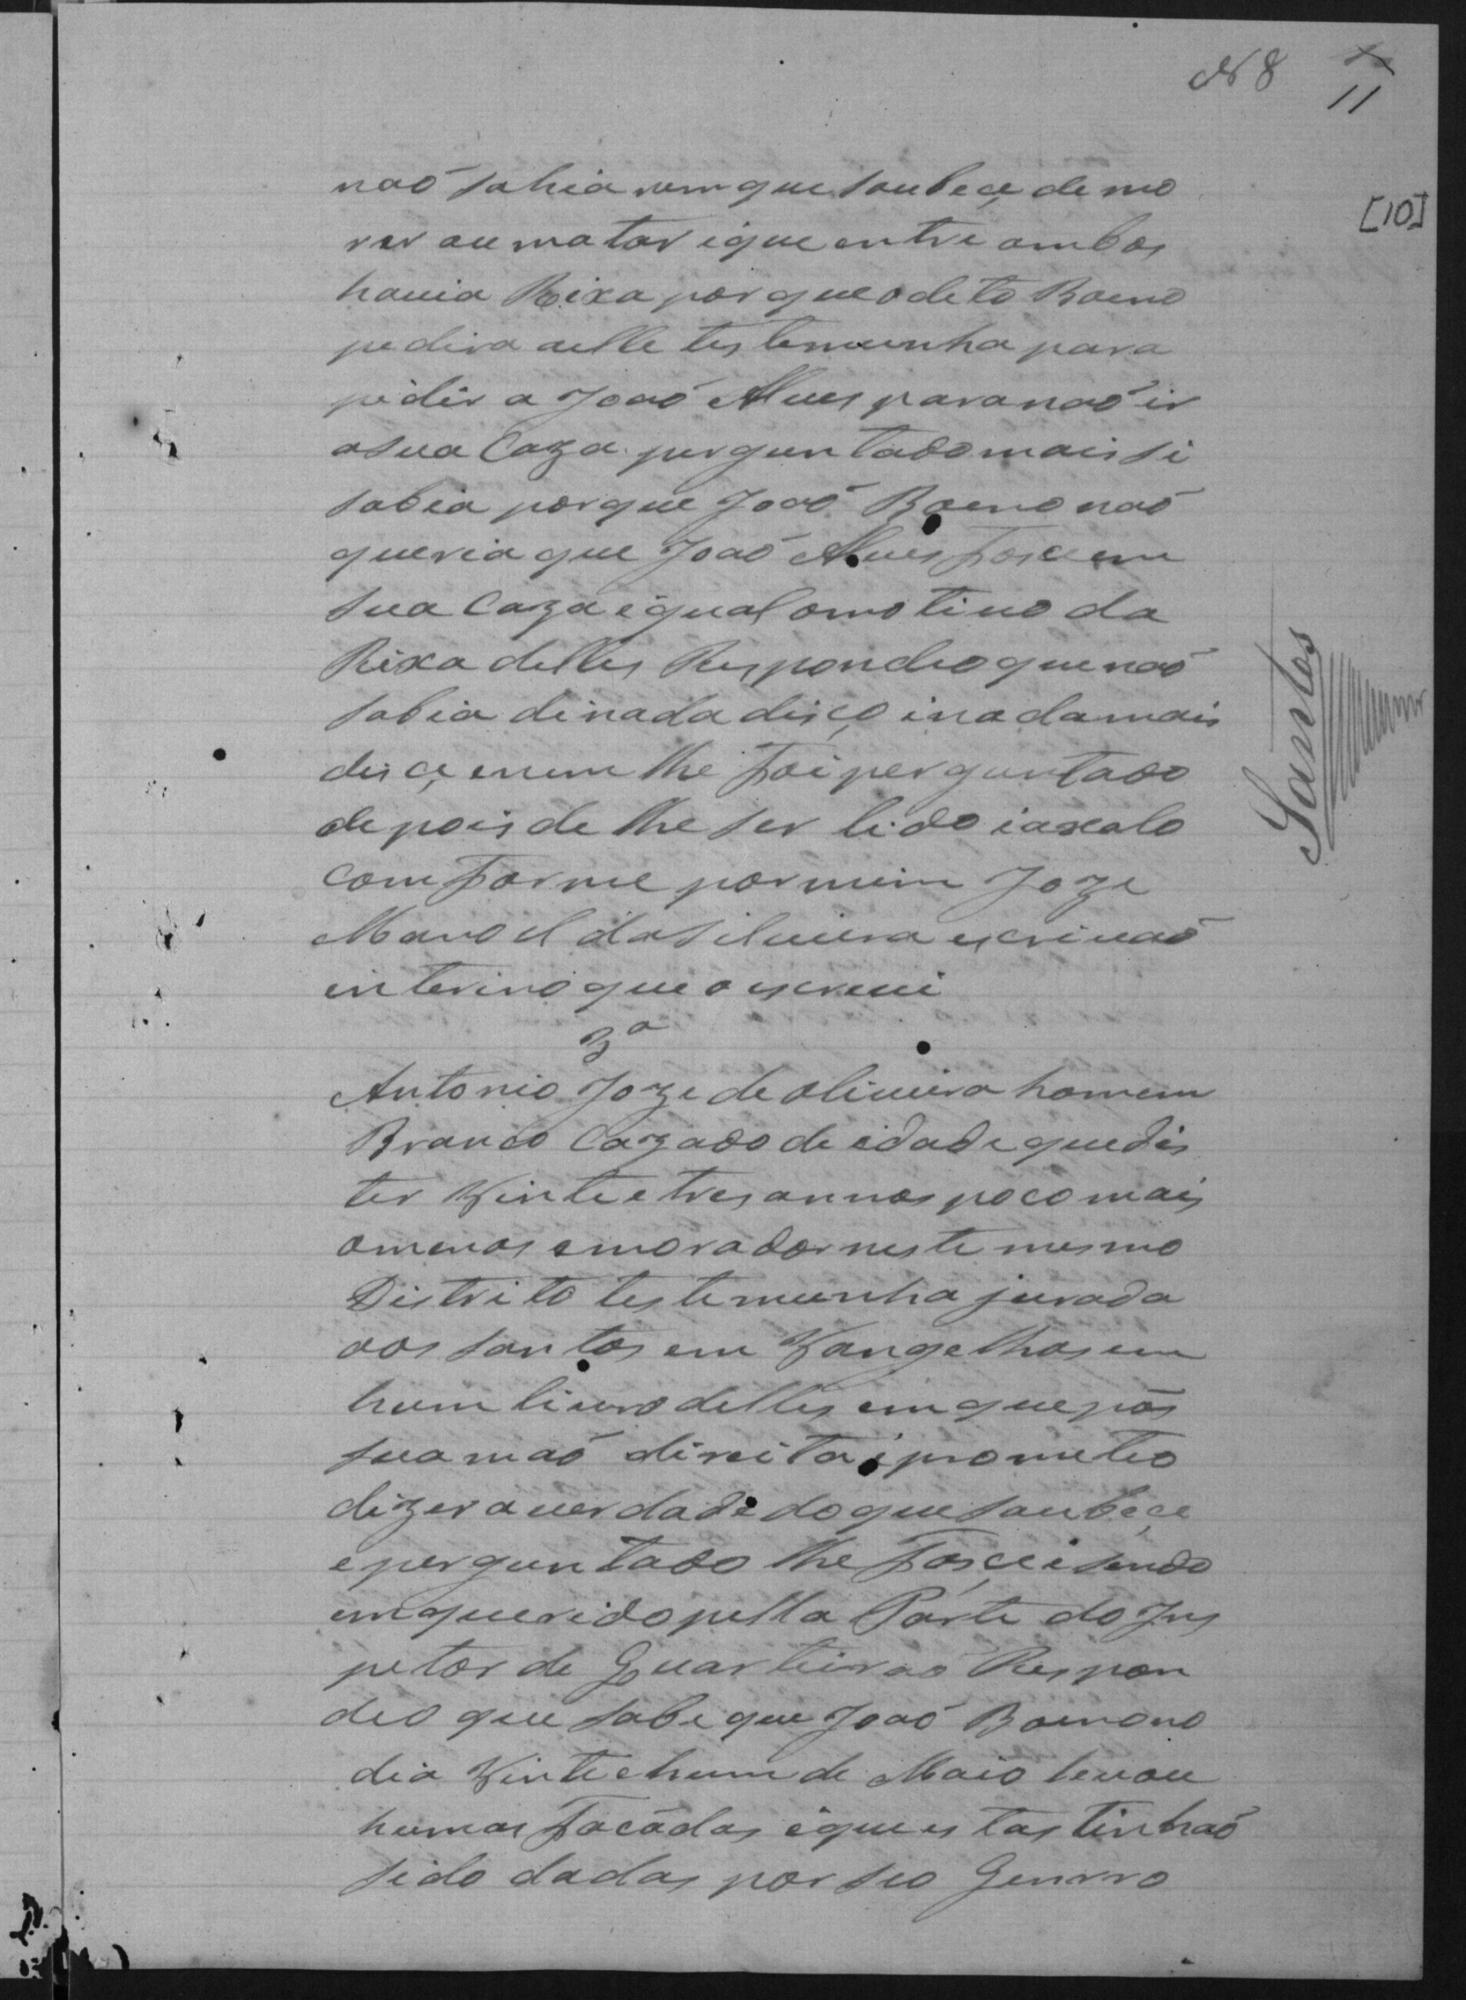 N 8
11
[10]
naõ sabia nem que soubeçe de mo
rer ou matar e que entre ambos
havia Rixa por que o deto Boeno
pedira a elle testemunha para
pedir a Joaõ Alves para naõ ir
a sua Caza perguntado mais si
sabia porque Joaõ Boeno naõ
queria que Joaõ Alves Fose em
sua Caza e qual omotivo da
Rixa delles Respondeo que naõ
sabia di nada disço i nada mais
disçe e nem lhe Foi perguntado
depois de lhe ser lido i axalo
comForme por mim Joze
Manoel da Silveira escrivaõ
interino que o escrevi
3ª
Antonio Joze de oliveira homem
Branco Cazado de idade que dis
ter Vinte e tres annos poco mais
o menos e morador neste mesmo
Distrito testemunha jurada
aos santos em Vangelhos em
hum livro delles em que pôs
sua maõ direita i prometeo
dizer a verdade do que soubeçe
e perguntado lhe Fosçe i sendo
enquerido pella Parte do Jns
petor de Quarteiraõ Respon
deo que sabe que Joaõ Boeno no
dia Vinte e hum de Maio levou
humas Facadas e que estas tinhaõ
sido dadas por seo Genrro
Santos